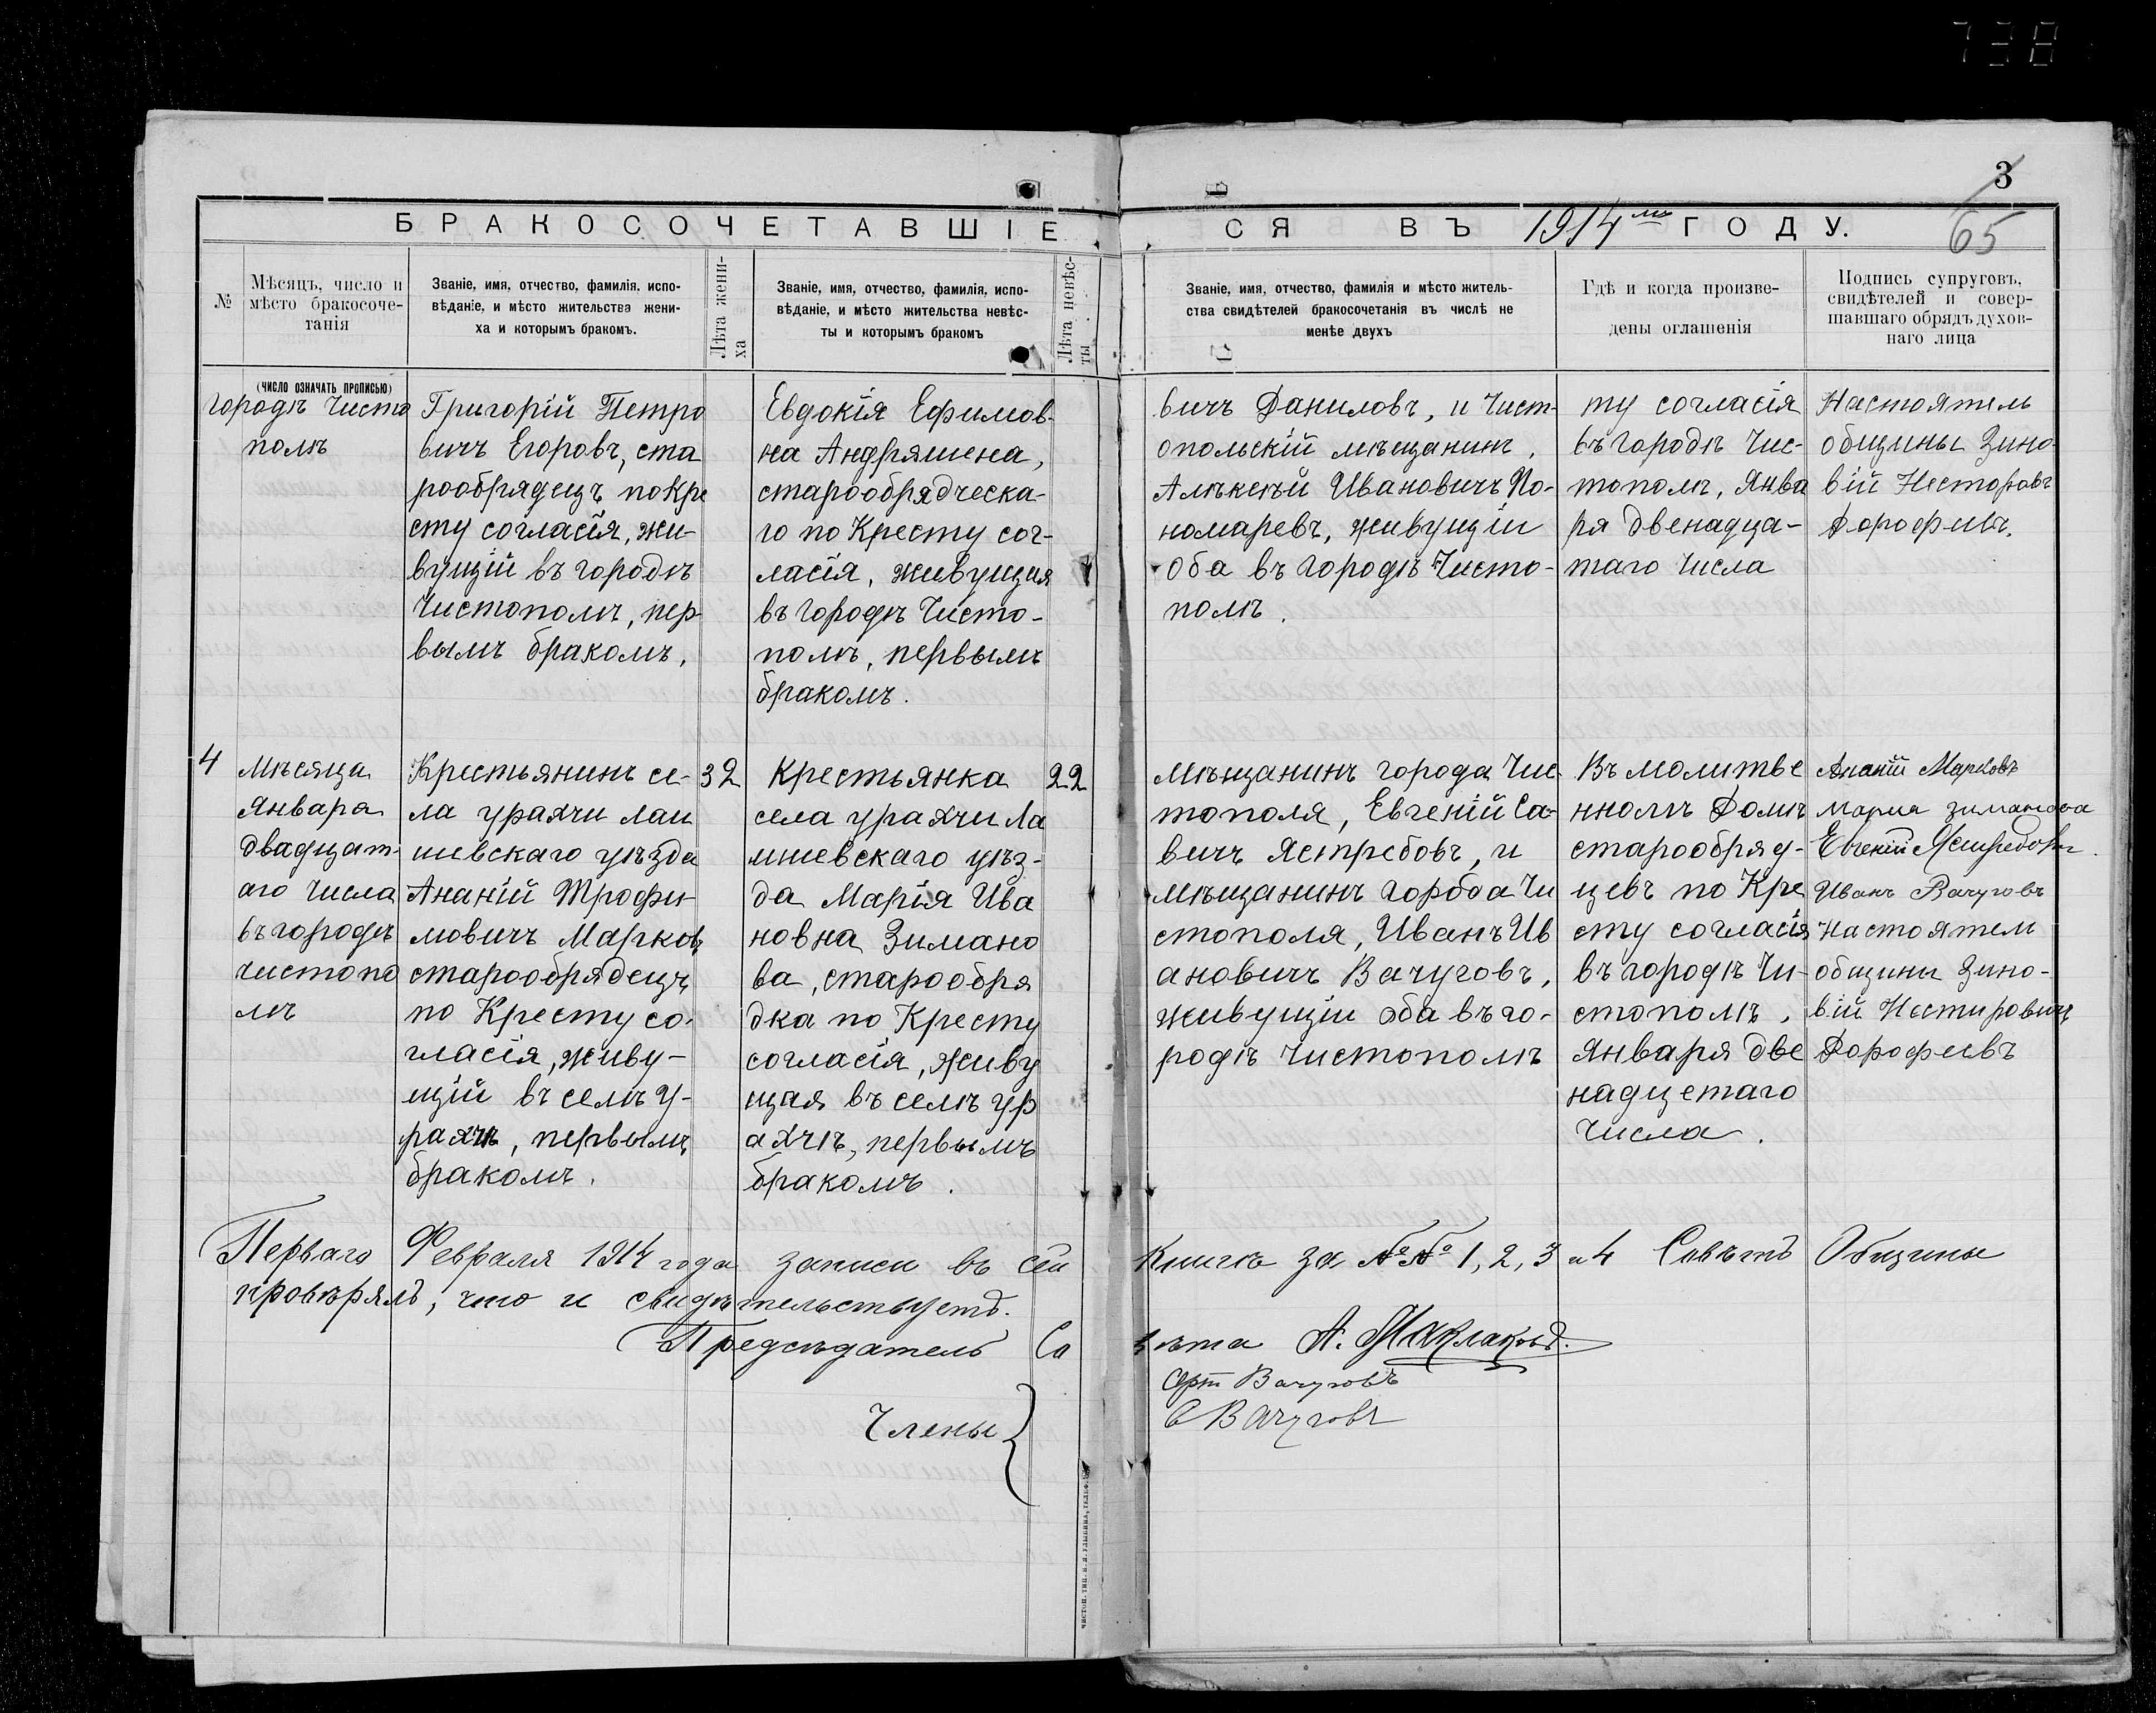 738
3
65
БРАКОСОЧЕТАВШІЕ
СЯ ВЪ 1914 мъ ГОДУ.
№
Мѣсяцъ, число и
мѣсто бракосоче-
танія
(число означать прописью)
Званіе, имя, отчество, фамилія, испо-
вѣданіе, и мѣсто жительства жени-
ха и которымъ бракомъ.
Лѣта жени-
ха
Званіе, имя, отчество, фамилія, испо-
вѣданіе, и мѣсто жительства невѣс-
ты и которымъ бракомъ
Лѣта невѣс-
ты
Званіе, имя, отчество, фамилія и мѣсто житель-
ства свидѣтелей бракосочетанія въ числѣ не
менѣе двухъ
Гдѣ и когда произве-
дены оглашенія
Подпись супруговъ,
свидѣтелей и совер-
шавшаго обрядъ духов-
наго лица
городѣ Чисто
полѣ
Григорій Петро
вичъ Егоровъ, ста
рообрядецъ по Кре
сту согласія, жи-
вущій въ городѣ
Чистополѣ, пер-
вымъ бракомъ,
Евдокія Ефимов-
на Андряшена,
старообрядческа-
го по Кресту сог-
ласія, живущая
въ городѣ Чисто-
полѣ, первымъ
бракомъ.
вичъ Даниловъ, и Чист-
опольскій мѣщанинъ,
Алѣксѣй Ивановичъ По-
номаревъ, живущіи
оба въ городѣ Чисто-
полѣ.
ту согласія
въ городѣ Чис-
тополѣ, Янва
ря двенадца-
таго числа
Настоятель
общины Зино
вій Несторовъ
Дорофеевъ.
4
Мѣсяца
Января
двадцат-
аго числа
въ городѣ
чистопо
лѣ
Крестьянинъ се-
ла урахчи лаи
шевскаго уѣзда
Ананій Трофи-
мовичъ Марковъ
старообрядецъ
по Кресту со-
гласія, живу-
щій въ селѣ У-
рахчѣ, первымъ
бракомъ.
32
Крестьянка
села урахчи Ла
ишевскаго уѣз-
да Марія Ива
новна Зимано
ва, старообря
дка по Кресту
согласія, живу
щая въ селѣ Ур
ахчѣ, первымъ
бракомъ.
22
Мѣщанинъ города Чис-
тополя, Евгеній Са-
вичъ Ястребовъ, и
мѣщанинъ города Чи
стополя, Иванъ Ив
ановичъ Вачуговъ,
живущіи оба въ го-
родѣ Чистополѣ
Въ молитве
нномъ Домѣ
старообряд-
цевъ по Кре
сту согласія
въ городѣ Чи-
стополѣ,
Января две
надцетаго
числа.
Ананій Марковъ
Мария зиманова
Евгеній Ястребовъ.
Иванъ Вачуговъ
Настоятель
общины Зино-
вій Нестировичъ
Дорофеевъ
Перваго Февраля 1914 года записи въ сей книгѣ за №№ 1, 2, 3 и 4 Совѣтъ Общины
провѣрялъ, что и свидѣтельствуетъ.
Предсѣдатель Совѣта А. Маклаковъ.
Члены
Вачуговъ
С Вачуговъ